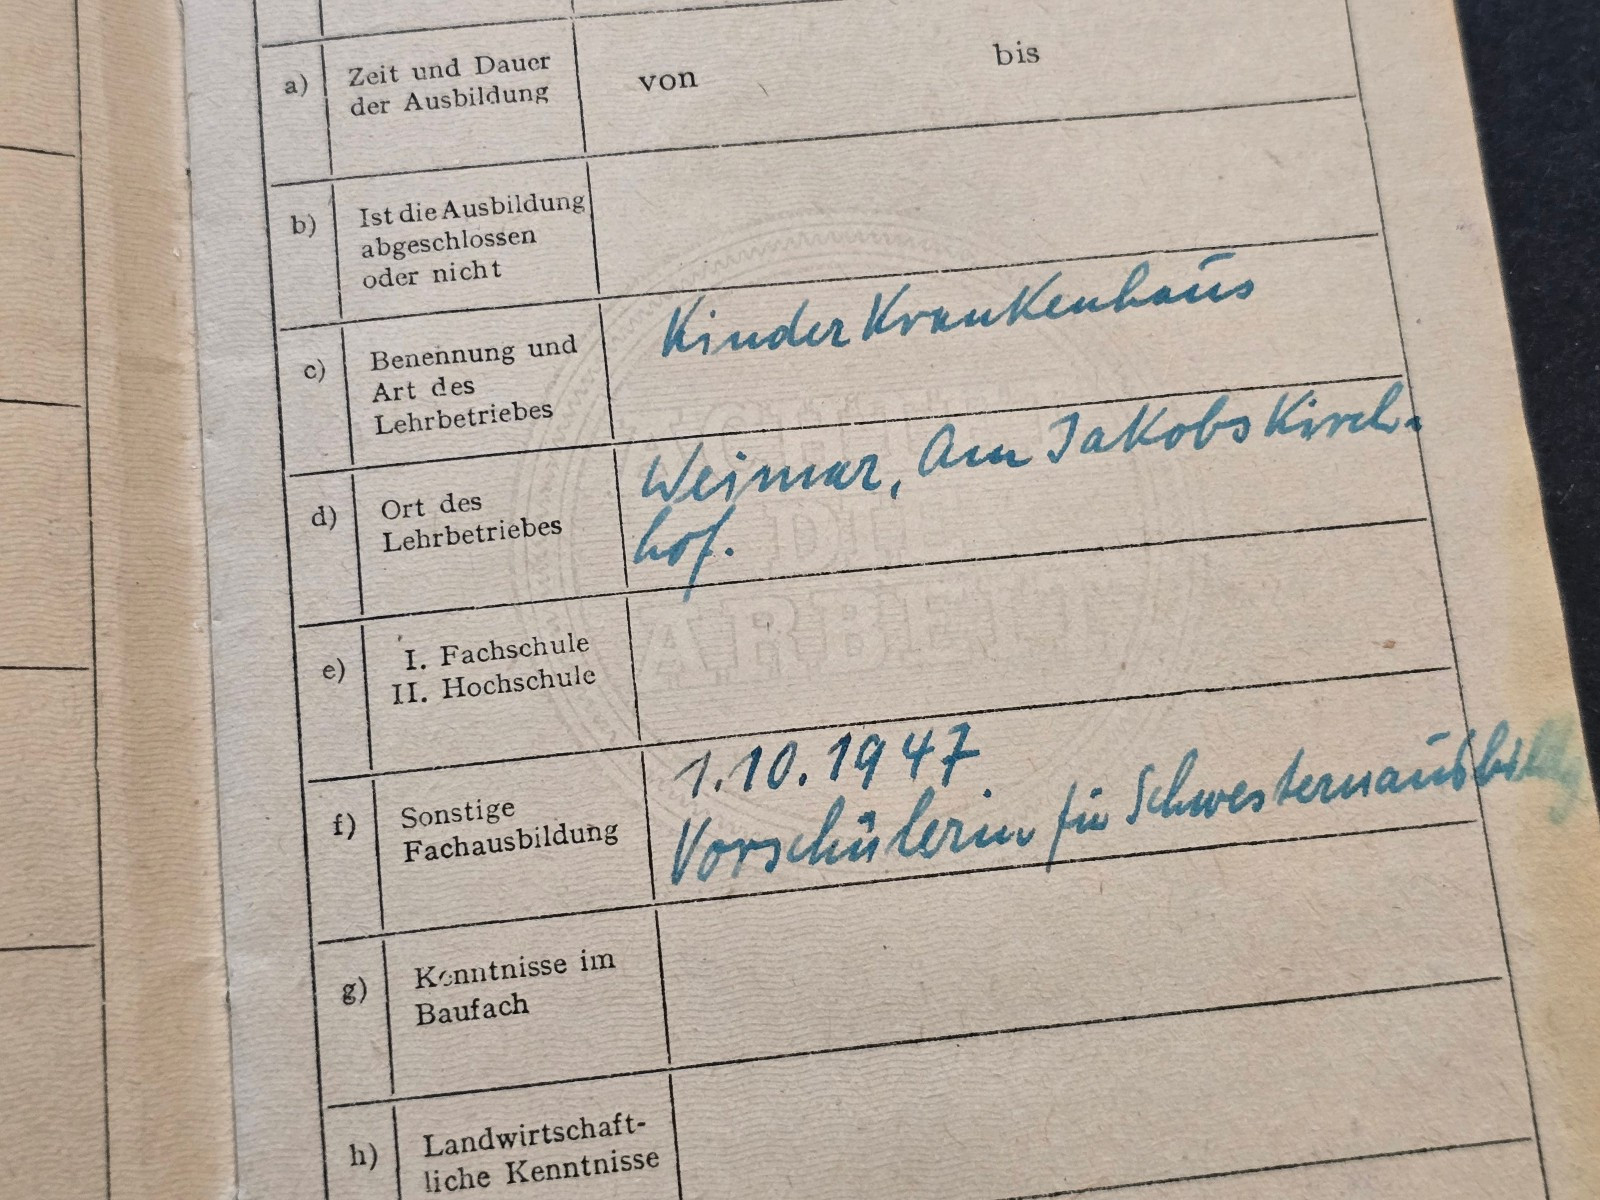 a) Zeit und Dauer
der Ausbildung
von bis
b) Ist die Ausbildung
abgeschlossen
oder nicht
c) Benennung und
Art des
Lehrbetriebes
KinderKrankenhaus
d) Ort des
Lehrbetriebes
Weimar, Am JakobsKirch-
hof.
e) I. Fachschule
II. Hochschule
f) Sonstige
Fachausbildung
1.10.1947
Vorschülerin für
g) Kenntnisse im
Baufach
h) Landwirtschaft-
liche Kenntnisse
ACHTET
DIE
ARBEIT